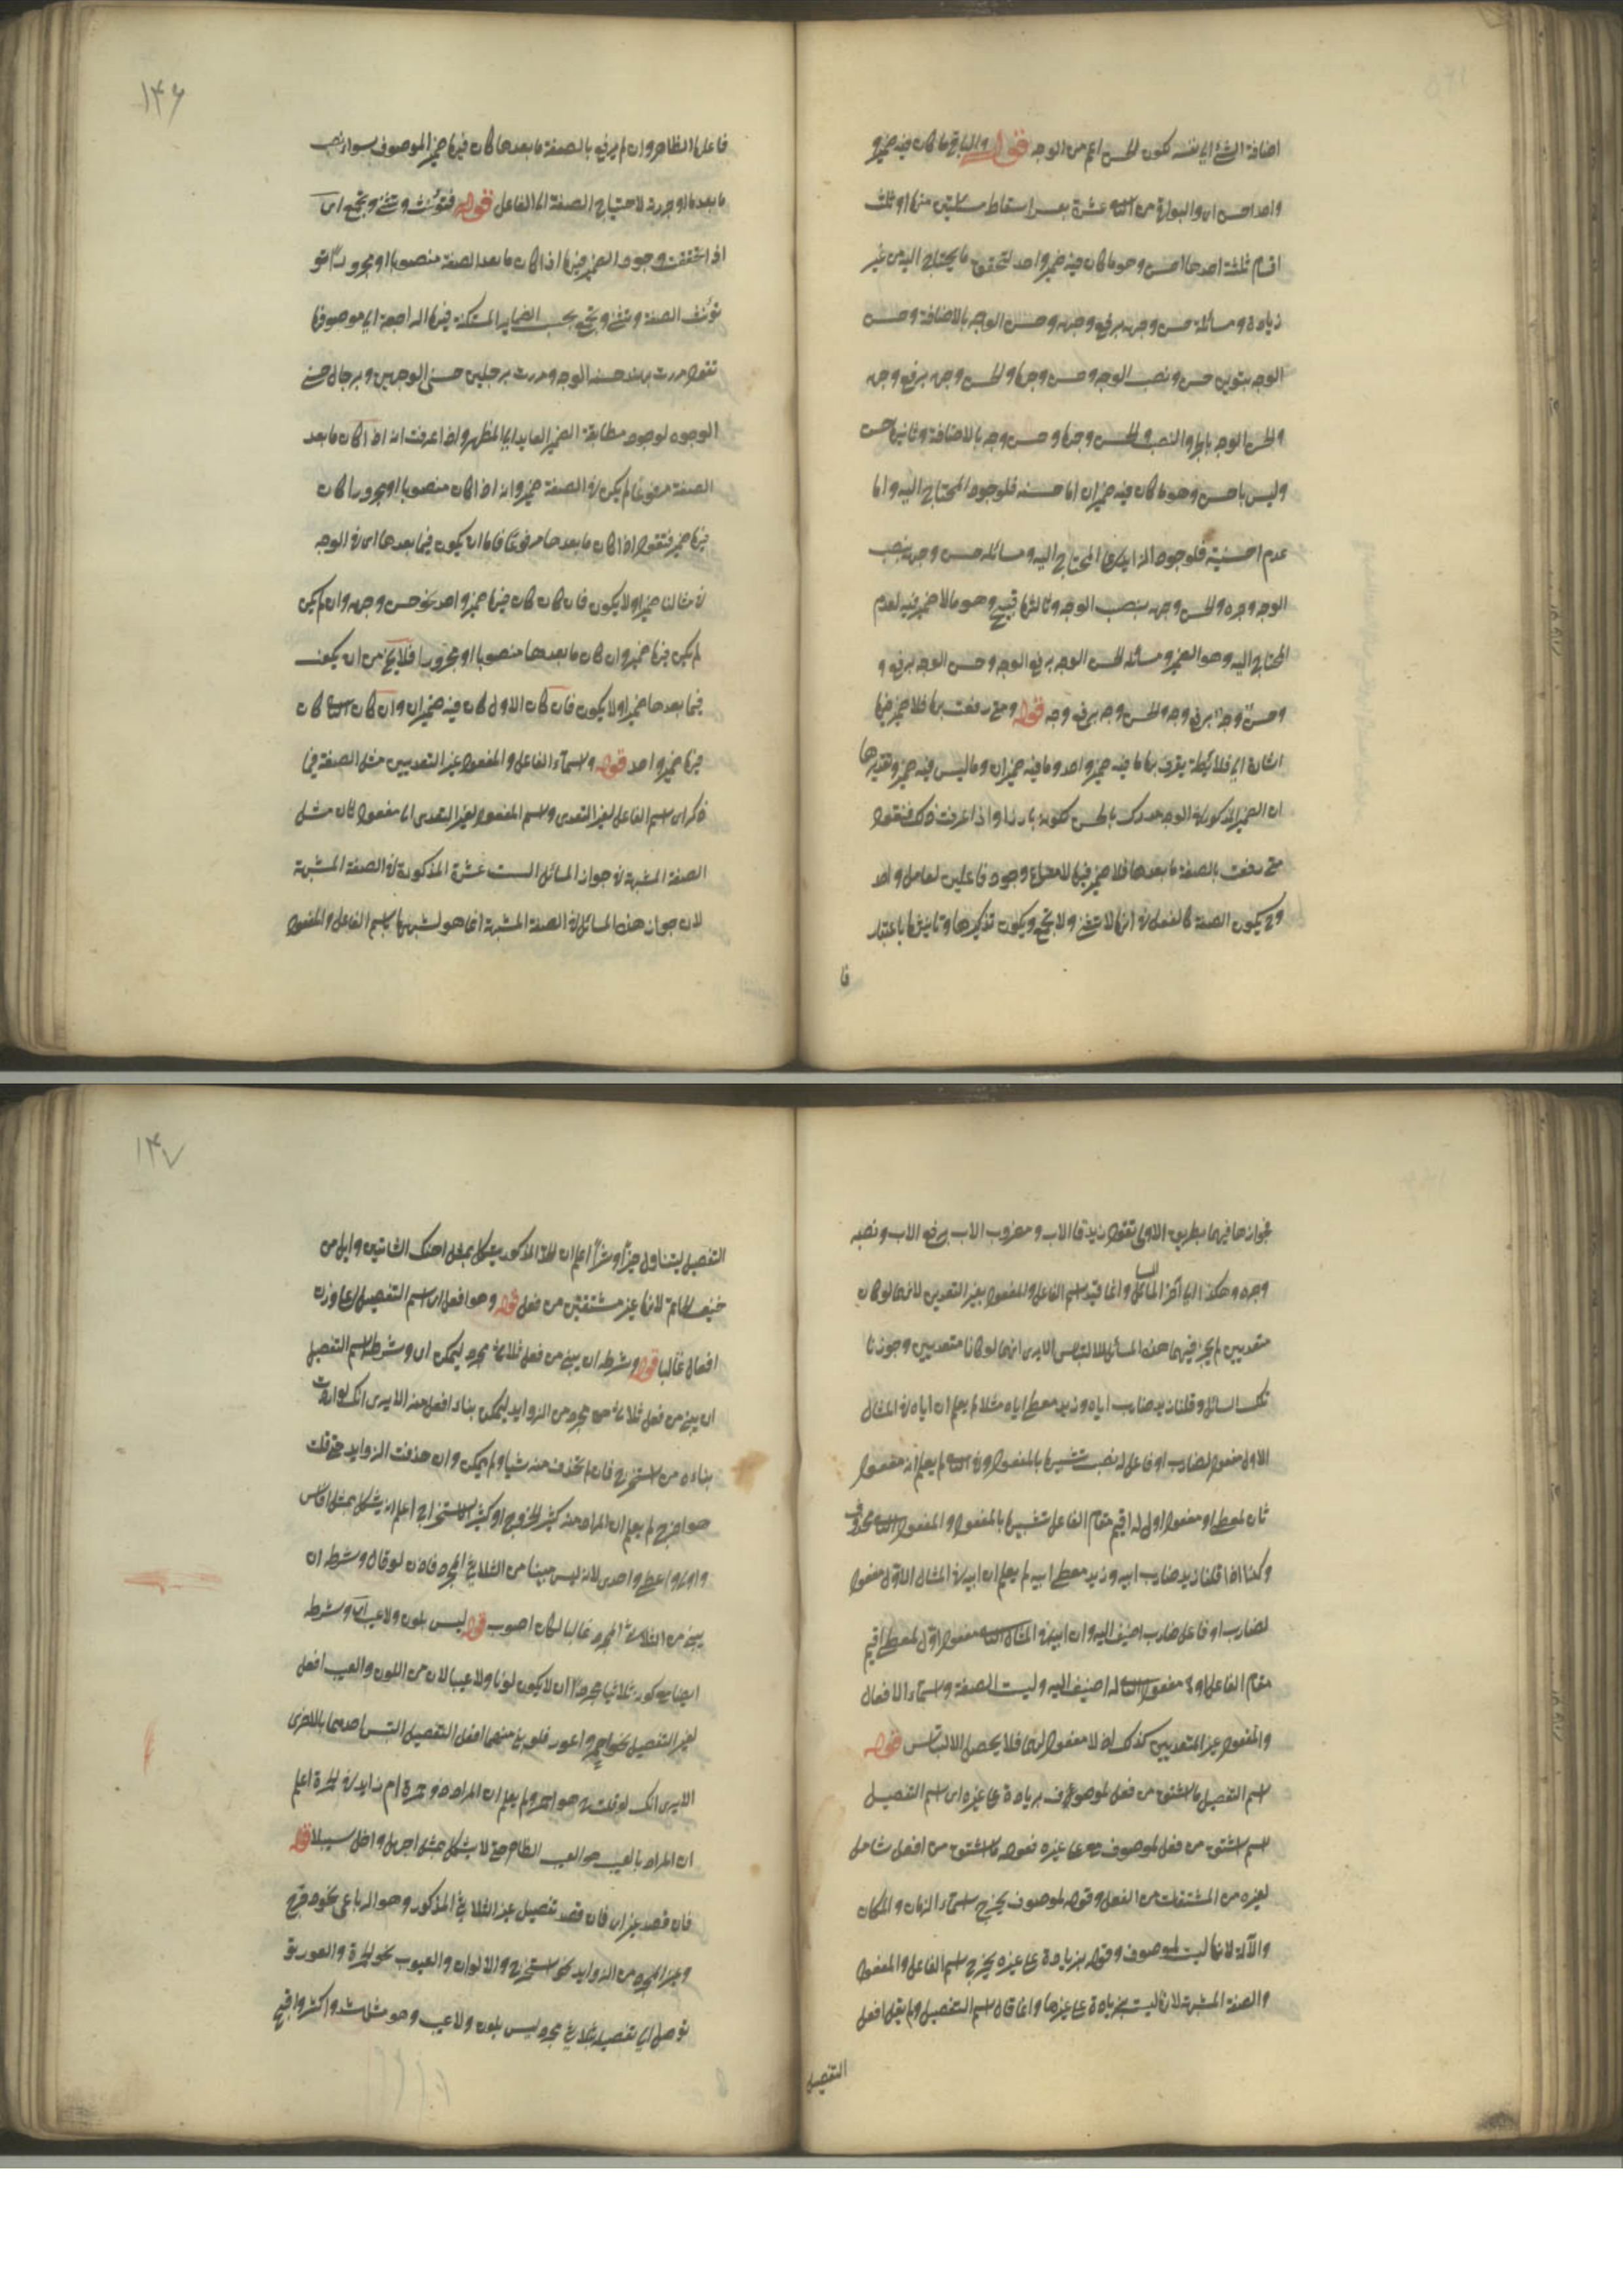 اضافة الشئ الى نفسه لكون الحسن اعم من الوجه قوله والباقى ما كان فيه ضمير
واحد احسن اى والبواقى من الثمانية عشرة بعد اسقاط مسئلتين منها او ثلث
اقسام ثلثة احدها احسن وهو ما كان فيه ضمير واحد لتحقق ما يحتاج اليه من غير
زيادة ومسائله حسن وجهه برفع وجهه وحسن الوجه بالاضافة وحسن
الوجه بتنوين حسن ونصب الوجه وحسن وجها والحسن وجهه برفع وجهه
والحسن الوجه بالجر والنصب والحسن وجها وحسن وجه بالاضافة وثانيها حسن
وليس باحسن وهو ما كان فيه ضميران اما حسنه فلوجود المحتاج اليه واما
عدم احسنيته فلوجود الزايد على المحتاج اليه ومسائله حسن وجهه بنصب
الوجه وجره والحسن وجهه بنصب الوجه وثالثها قبيح وهو ما لا ضمير فيه لعدم
المحتاج اليه وهو الضمير ومسائله الحسن الوجه برفع الوجه وحسن الوجه برفع و
وحسن وجه برفع وجه والحسن وجه برفع وجه قوله ومتى رفعت بها فلا ضمير فيها
اشارة الى ضابطة يعرف بها ما فيه ضمير واحد وما فيه ضميران وما ليس فيه ضمير وتقديرها
ان الضمير المذكور فى الوجه مدرك بالحس لكونه بارزا واذا عرفت ذلك فنقول
متى رفعت بالصفة ما بعدها فلا ضمير فيها لامتناع وجود فاعلين لعامل واحد
وح يكون الصفة كالفعل فى انها لا تثنى ولا تجمع ويكون تذكيرها وتانيثها باعتبار
فا
١٤٦
فاعلها الظاهر وان لم يرفع بالصفة ما بعدها كان فيها ضمير الموصوف سواء نصب
ما بعدها او جررته لاحتياج الصفة الى الفاعل قوله فتؤنث وتثنى وتجمع اى
اذا تحققت وجود الضمير فيها اذا كان ما بعد الصفة منصوبا او مجرورا تؤ
تؤنث الصفة وتثنى وتجمع بحسب الضماير المستكنة فيها الراجعة الى موصوفها
تقول مررت بهند حسنة الوجه ومررت برجلين حسنى الوجهين وبرجال حسنى
الوجوه لوجود مطابقة الضمير العايد الى المظهر واذا عرفت انه اذا كان ما بعد
الصفة مرفوعا لم يكن فى الصفة ضمير وانه اذا كان منصوبا او مجرورا كان
فيها ضمير فتقول اذا كان ما بعدها مرفوعا فاما ان يكون فيما بعدها اى فى الوجه
فى مثالنا ضمير او لا يكون فان كان كان فيها ضمير واحد نحو حسن وجهه وان لم يكن
لم يكن فيها ضمير وان كان ما بعدها منصوبا او مجرورا فلا يخ من ان يكون
فيما بعدها ضمير او لا يكون فان كان الاول كان فيه ضميران وان كان الثانى كان
فيها ضمير واحد قوله واسماء الفاعل والمفعول غير المتعديين مثل الصفة فيما
ذكر اى اسم الفاعل لغير المتعدى واسم المفعول لغير المتعدى الى مفعول ثان مثل
الصفة المشبهة فى جواز المسائل الست عشرة المذكورة فى الصفة المشبهة
لان جواز هذه المسائل فى الصفة المشبهة انما هو لشبهها باسم الفاعل والمفعول
فجوازها فيهما بطريق الاولى تقول زيد قائم الاب ومضروب الاب برفع الاب ونصبه
وجره وهكذا الى اخر المسائل وانما قيد اسم الفاعل والمفعول بغير المتعديين لانهما لو كان
متعديين لم يجز فيهما هذه المسائل للالتباس الا يرى انهما لو كانا متعديين وجوزنا
تلك المسائل وقلنا زيد ضارب اباه وزيد معطى اباه مثلا لم يعلم ان اباه فى المثال
الاول مفعول لضارب او فاعل له نصب تشبيها بالمفعول وفى الثانى لم يعلم انه مفعول
ثان لمعطى او مفعول اول له اقيم مقام الفاعل تشبيها بالمفعول والمفعول الثانى محذوف
وكذا اذا قلنا زيد ضارب ابيه وزيد معطى ابيه لم يعلم ان ابيه فى المثال الاول مفعول
لضارب او فاعل ضارب اضيف اليه وان ابيه فى المثال الثانى مفعول اول لمعطى اقيم
مقام الفاعل او مفعول الثانى له اضيف اليه وليست الصفة واسماء الافعال
والمفعول غير المتعديين كذلك اذ لا مفعول لهما فلا يحصل الالتباس قوله
اسم التفضيل ما اشتق من فعل لموصوف بزيادة على غيره اى اسم التفضيل
اسم اشتق من فعل لموصوف بزيادة على غيره فقوله ما اشتق من افعل شامل
لغيره من المشتقات من الفعل وقوله لموصوف يخرج اسماء الزمان والمكان
والآلة لانها ليست لموصوف وقوله بزيادة على غيره يخرج اسم الفاعل والمفعول
والصفة المشبهة لانها ليست بزيادة على غيرها وانما قال اسم التفضيل ولم يقل افعل
التفضيل
١٤٧
التفضيل ليتناول خيرا وشرا اعلم ان الحد المذكور يشكل بمثل احنك الشاتين وابل من
حنيف الحناتم لانها غير مشتقتين من فعل قوله وهو افعل اى اسم التفضيل على وزن
افعل غالبا قوله وشرطه ان يبنى من فعل ثلاثى مجرد ليمكن اى وشرط اسم التفضيل
ان يبنى من فعل ثلاثى مجرد من الزوايد ليمكن بناء افعل منه الا يرى انك لو اردت
بناءه من استخرج فان لم تحذف منه شيا لم يمكن وان حذفت الزوايد حتى قلت
هو اخرج لم يعلم ان المراد منه كثير الخروج او كثير الاستخراج اعلم انه يشكل بمثل افلس
واولى واعطى واحدى لانه ليس مبنيا من الثلاثى المجرد فاذن لو قال وشرطه ان
يبنى من الثلاثى المجرد غالبا لكان اصوب قوله ليس بلون ولا عيب اى وشرطه
ايضا مع كونه ثلاثيا مجردا ان لا يكون لونا ولا عيبا لان من اللون والعيب افعل
لغير التفضيل نحو احمر واعور فلو بنى منهما افعل التفضيل التبس احدهما بالاخرى
الا يرى انك لو قلت هو احمر ولم يعلم ان المراد ذو حمرة ام زايد فى الحمرة اعلم
ان المراد بالعيب هو العيب الظاهر حتى لا يشكل بمثل اجهل واضل سبيلا قوله
فان قصد غير اى فان قصد تفضيل غير الثلاثى المذكور وهو الرباعى نحو دحرج
وغير المجرد من الزوايد نحو استخرج والالوان والعيوب نحو الحمرة والعور تو
توصل الى تفضيله بثلاثى مجرد ليس بلون ولا عيب وهو مثل اشد واكثر واقبح